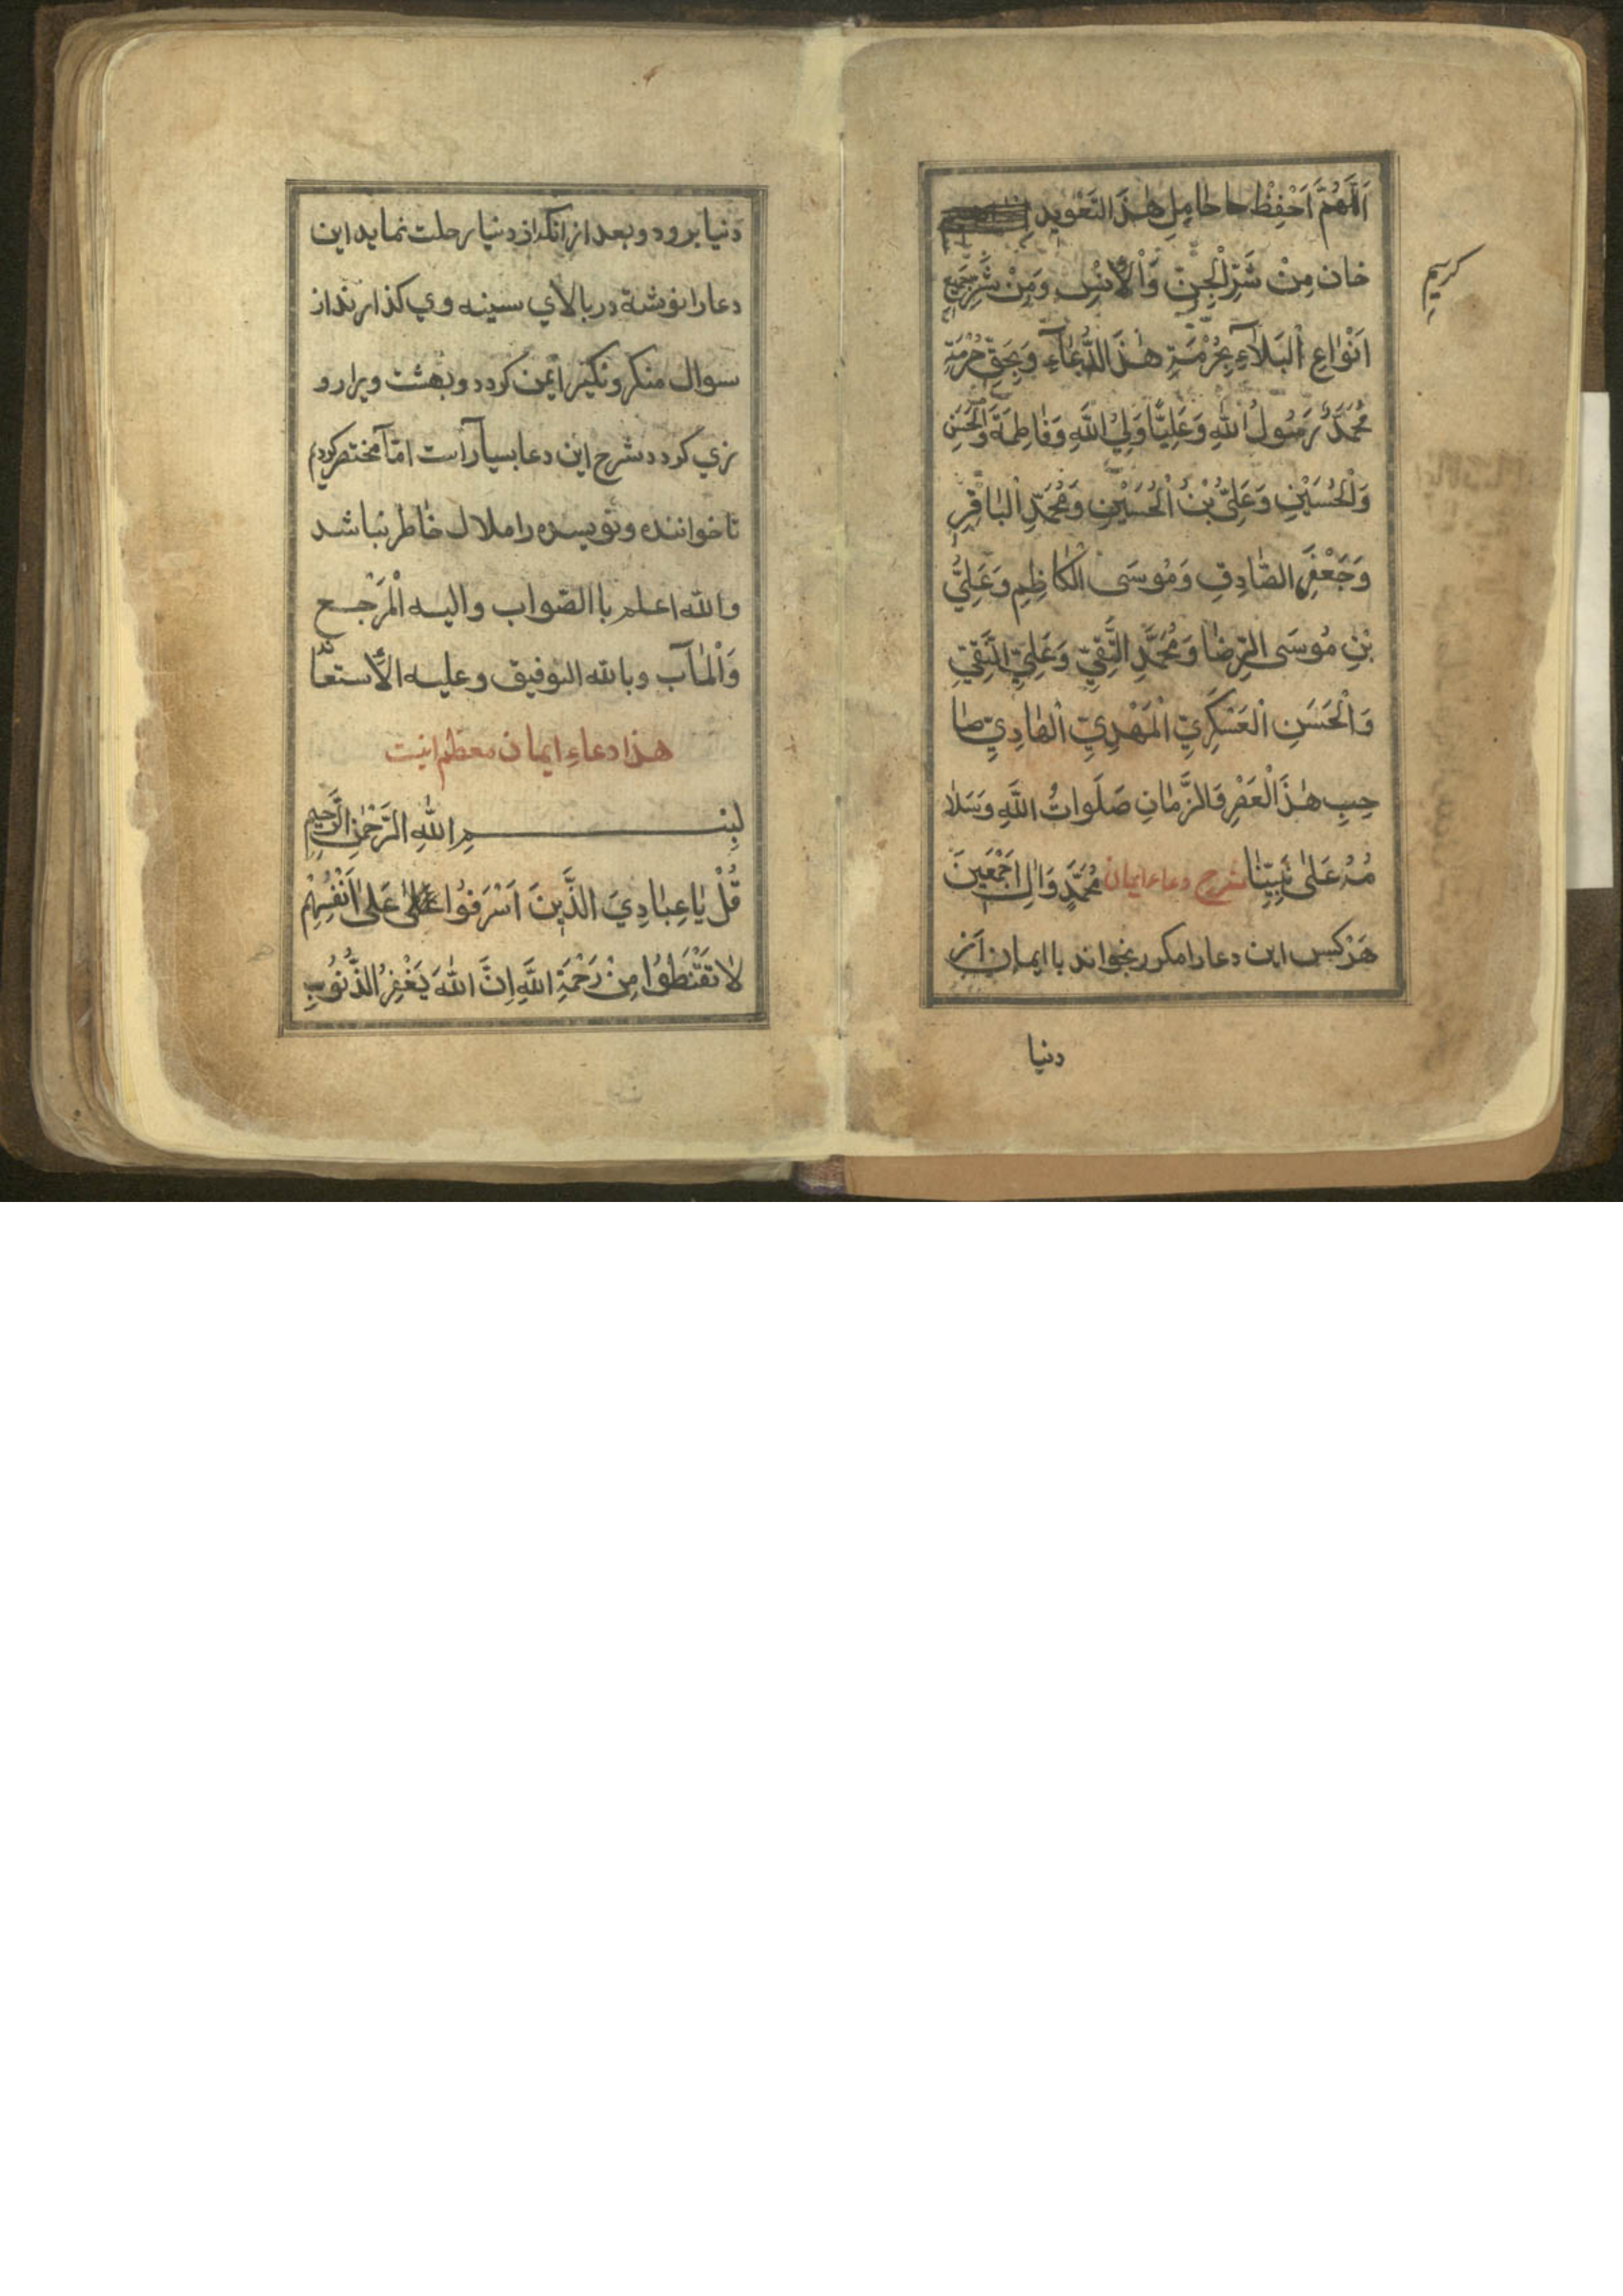 اَللّٰهُمَّ اَحْفِظْ حا حٰامِلِ هٰذَ التَعْویدِ
کریم
خان مِنْ شَرِّ الْجِنِّ وَاْلاُنْسِ وَمِنْ شَرِّ جَمِیْعِ
اَنْوٰاعِ الْبَلآءِ بِحُرْمَةِ هٰذَ الدُّعٰآءِ وَبِحَقِّ حُرْمَةِ
مُحَمَّدٌ رَسُولُ اللّٰهِ وَعَلِیًّا وَلِیُ اللَّهِ وَفٰاطِمَةَ وَالْحَسَنِ
وَلْحُسَیْنِ وَعَلِیِّ بْنُ الْحُسَیْنِ وَمُحَمَّدِ الْبٰاقِرِ
وَجَعْفَرِ الصّٰادِقِ وَمُوسَی الْکٰاظِمِ وَعَلِیُّ
بْنِ مُوسَی الرِّضٰا وَمُحَمَّدِ التَّقِیِّ وَعَلِیِّ النَّقِیِّ
وَالْحَسَنِ الْعَسْکَرِیِّ الْمَهْدِیِّ الْهٰادِیِّ صٰا
حِبِ هٰذَ الْعَصْرِ وَالزَّمٰانِ صَلَواتُ اللَّهِ وَسَلٰا
مُهُ عَلیٰ نَبِیِّنٰا شرح دعاء ایمان مُحَمَّدٍ وَاٰلِهِ اَجْمَعِینَ
هَرْ کس این دعا را مکرر بخواند با ایمان اَز
دنیا
دنیا برود و بعد از انکه از دنیا رحلت نماید این
دعا را نوشته در بالای سینه وی کذارند از
سوال منکر و نکیر ایمن کردد و بهشت ویرا رو
زی کردد شرح این دعا بسیار است امّا مختصر کردم
تا خواننده و نویسنده را ملال خاطر نباشد
والله اعلم با الصّواب والیه اْلمَرْجع
وَاْلمٰآب وبالله التوفیق وعلیه الاُستعٰا نه
هذا دعاءِ ایمان معظم اینست
بِسْمِ اللّٰهِ الرَّحْمٰنِ الرَّحِیمِ
قُلْ یٰا عِبٰادِیَ الَّذَینَ اَسْرَفُوا عَلیٰ اَنْفُسِهِمْ
لٰا تَقْنَطُوا مِنْ رَحْمَةِ اللَّهِ اِنَّ اللّٰهَ یَغْفِرُ الذُّنُوبِ